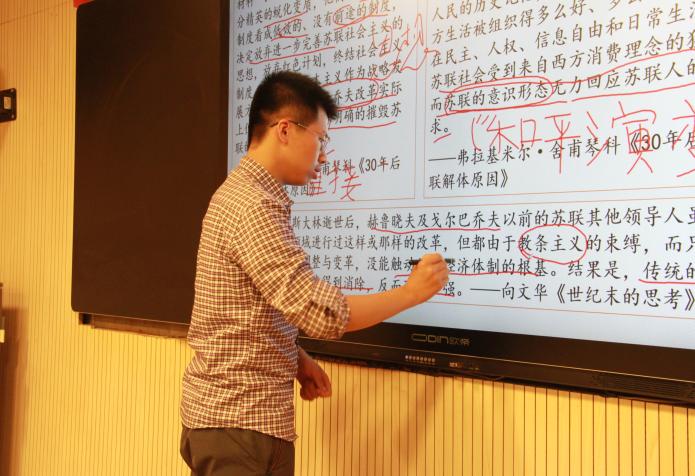 材料
分精英的蜕化变质,
制度看成低效的、没有前途的制度,
决定放弃进一步完善苏联社会主义的
思想
制度
主义作为战略发
展方
乔夫改革实际
上
明确的摧毁苏
甫琴科《30年后
联解体原因》
直接
人民的历史
方生活被组织得多么好、多么
自由和日常生
在民主、人权、信息自由和日常生
苏联社会受到来自西方消费理念的猛
而苏联的意识形态无力回应苏联人的
求。
“和平演变
——弗拉基米尔·舍甫琴科《30年后
联解体原因》
斯大林逝世后,赫鲁晓夫及戈尔巴乔夫以前的苏联其他领导人虽
领域进行过这样或那样的改革,但都由于教条主义的束缚,而只
调整与变革,没能触动 经济体制的根基。结果是,传统的
得到消除,反而 强。——向文华《世纪末的思考》
ODIN欧帝